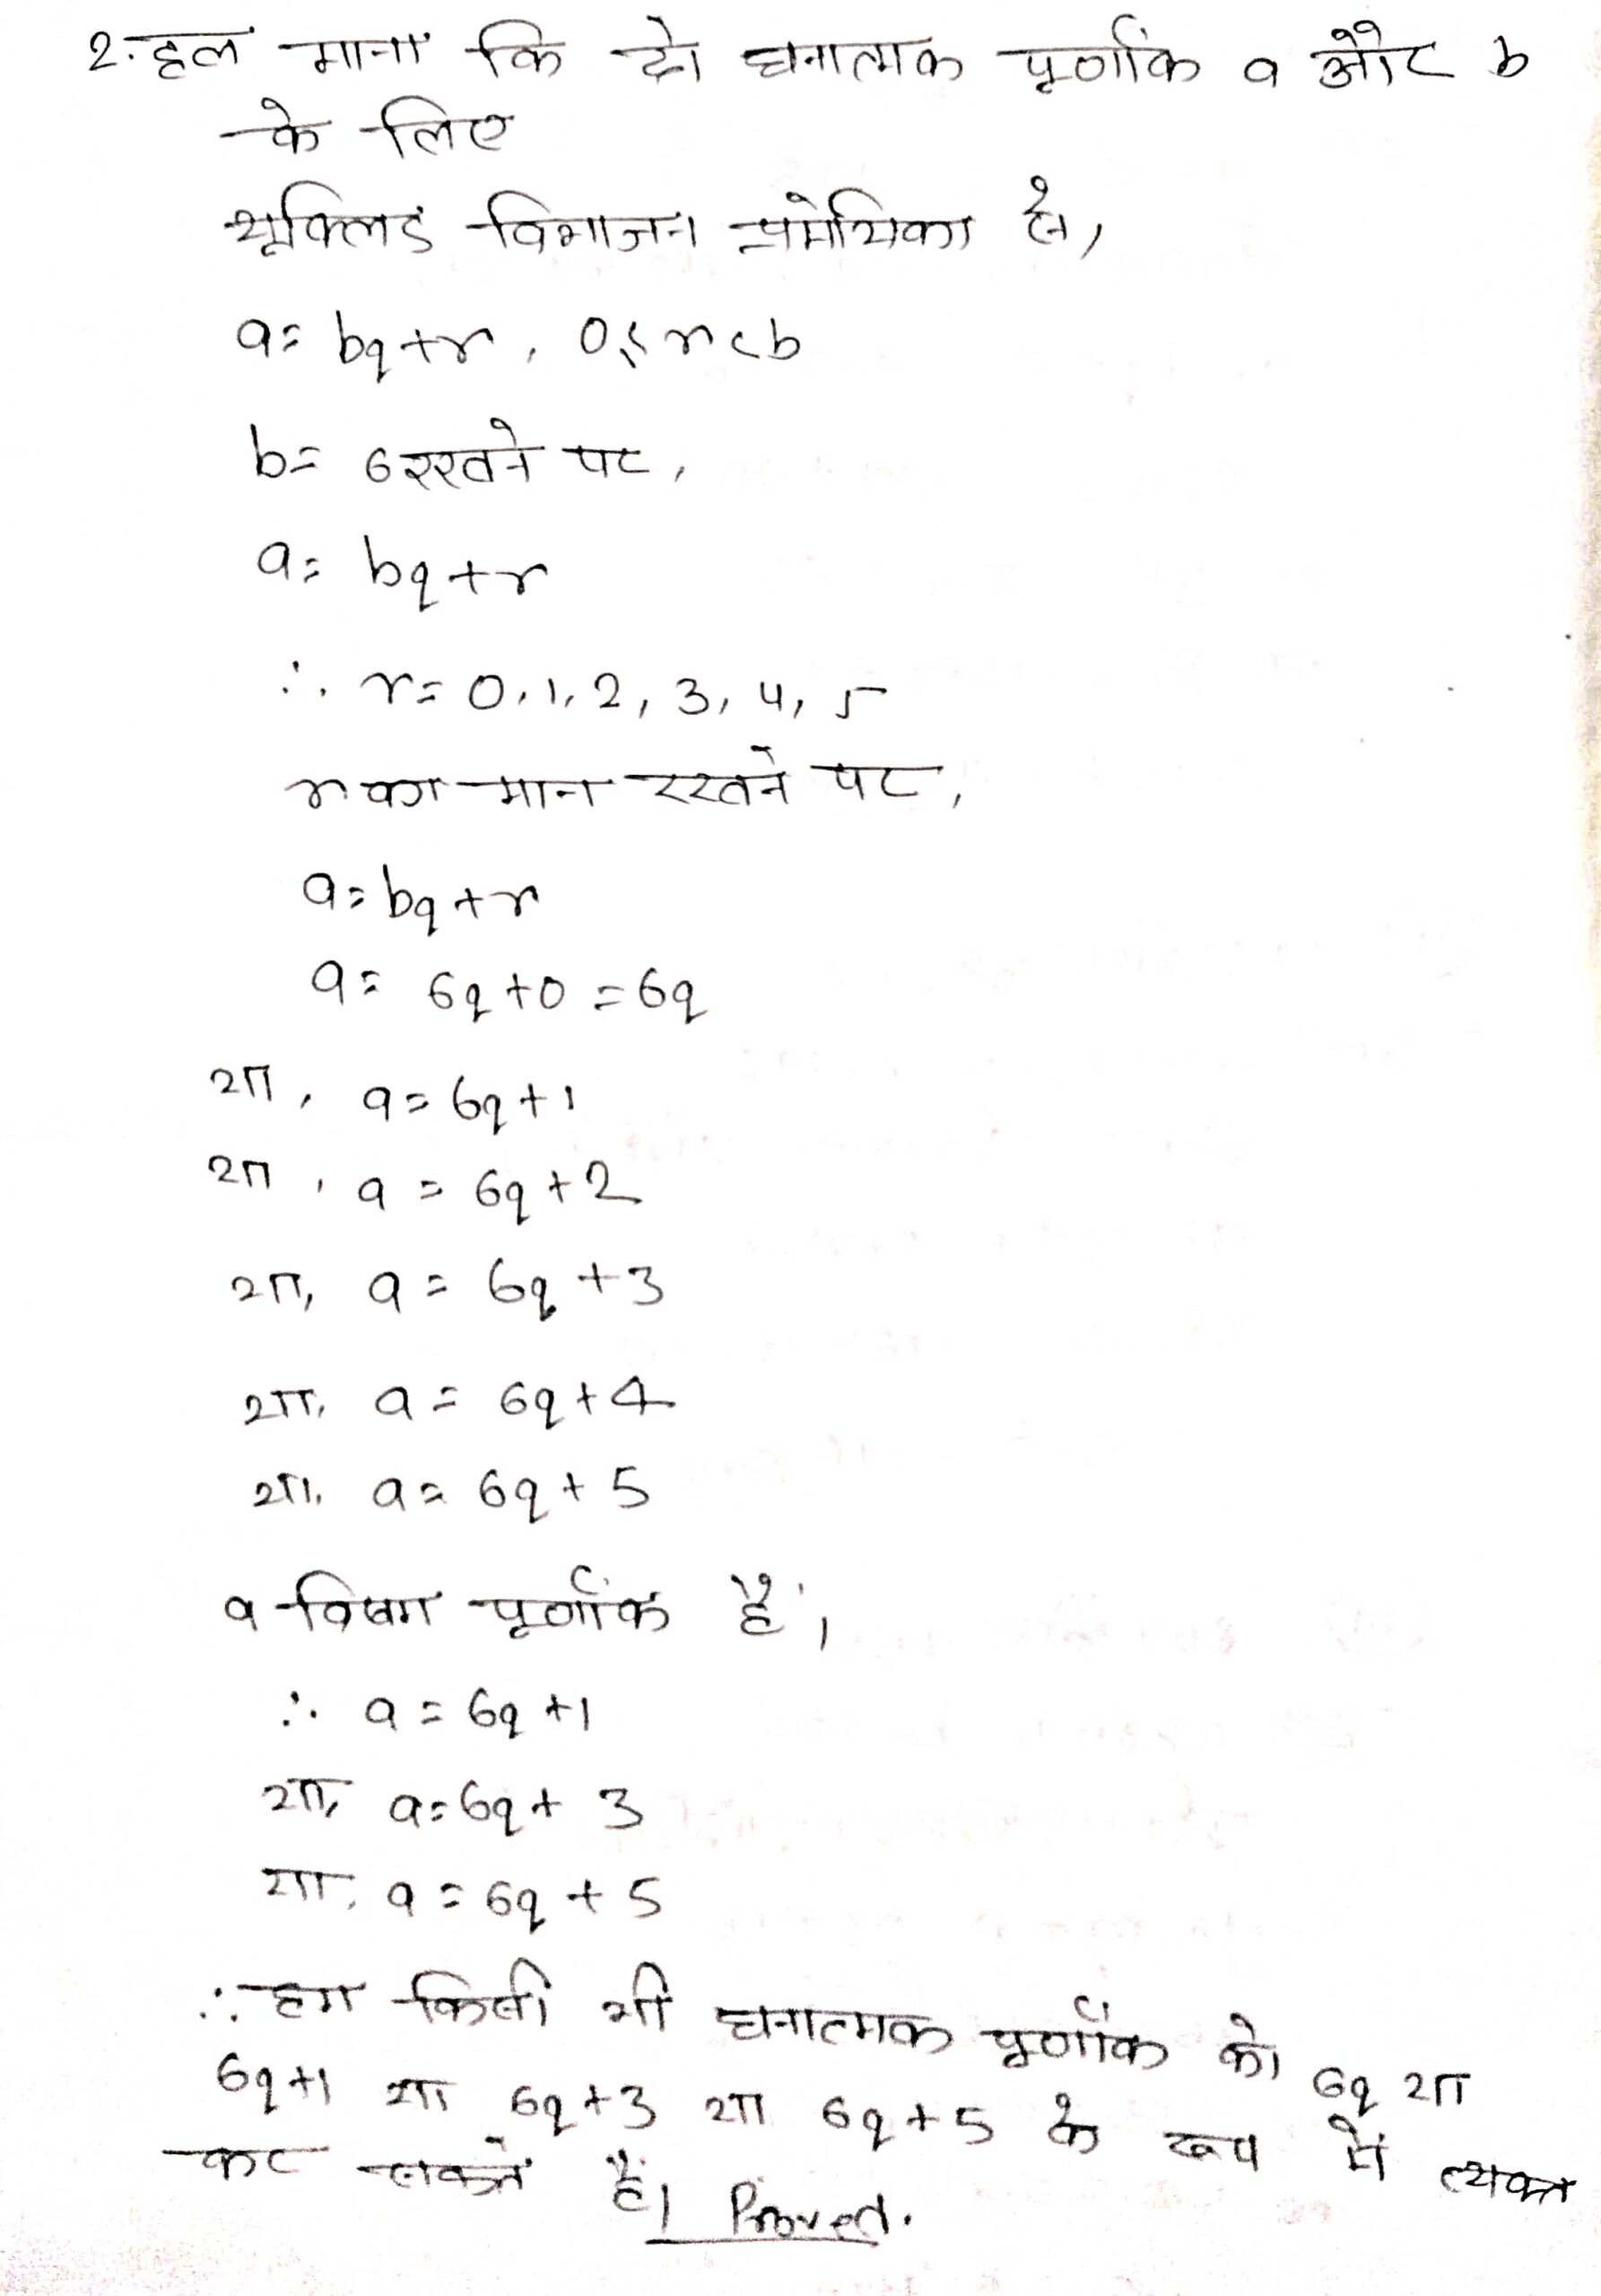 2. हल माना कि दो धनात्मक पूर्णांक a और b
के लिए
यूक्लिड विभाजन प्रमेयिका से,
a = bq + r, 0 ≤ r < b
b = 6 रखने पर,
a = bq + r
∴ r = 0, 1, 2, 3, 4, 5
r का मान रखने पर,
a = bq + r
a = 6q + 0 = 6q
या, a = 6q + 1
या, a = 6q + 2
या, a = 6q + 3
या, a = 6q + 4
या, a = 6q + 5
a विषम पूर्णांक है,
∴ a = 6q + 1
या, a = 6q + 3
या, a = 6q + 5
∴ हम किसी भी धनात्मक पूर्णांक को 6q या
6q+1 या 6q+3 या 6q+5 के रूप में व्यक्त
कर सकते हैं। Proved.